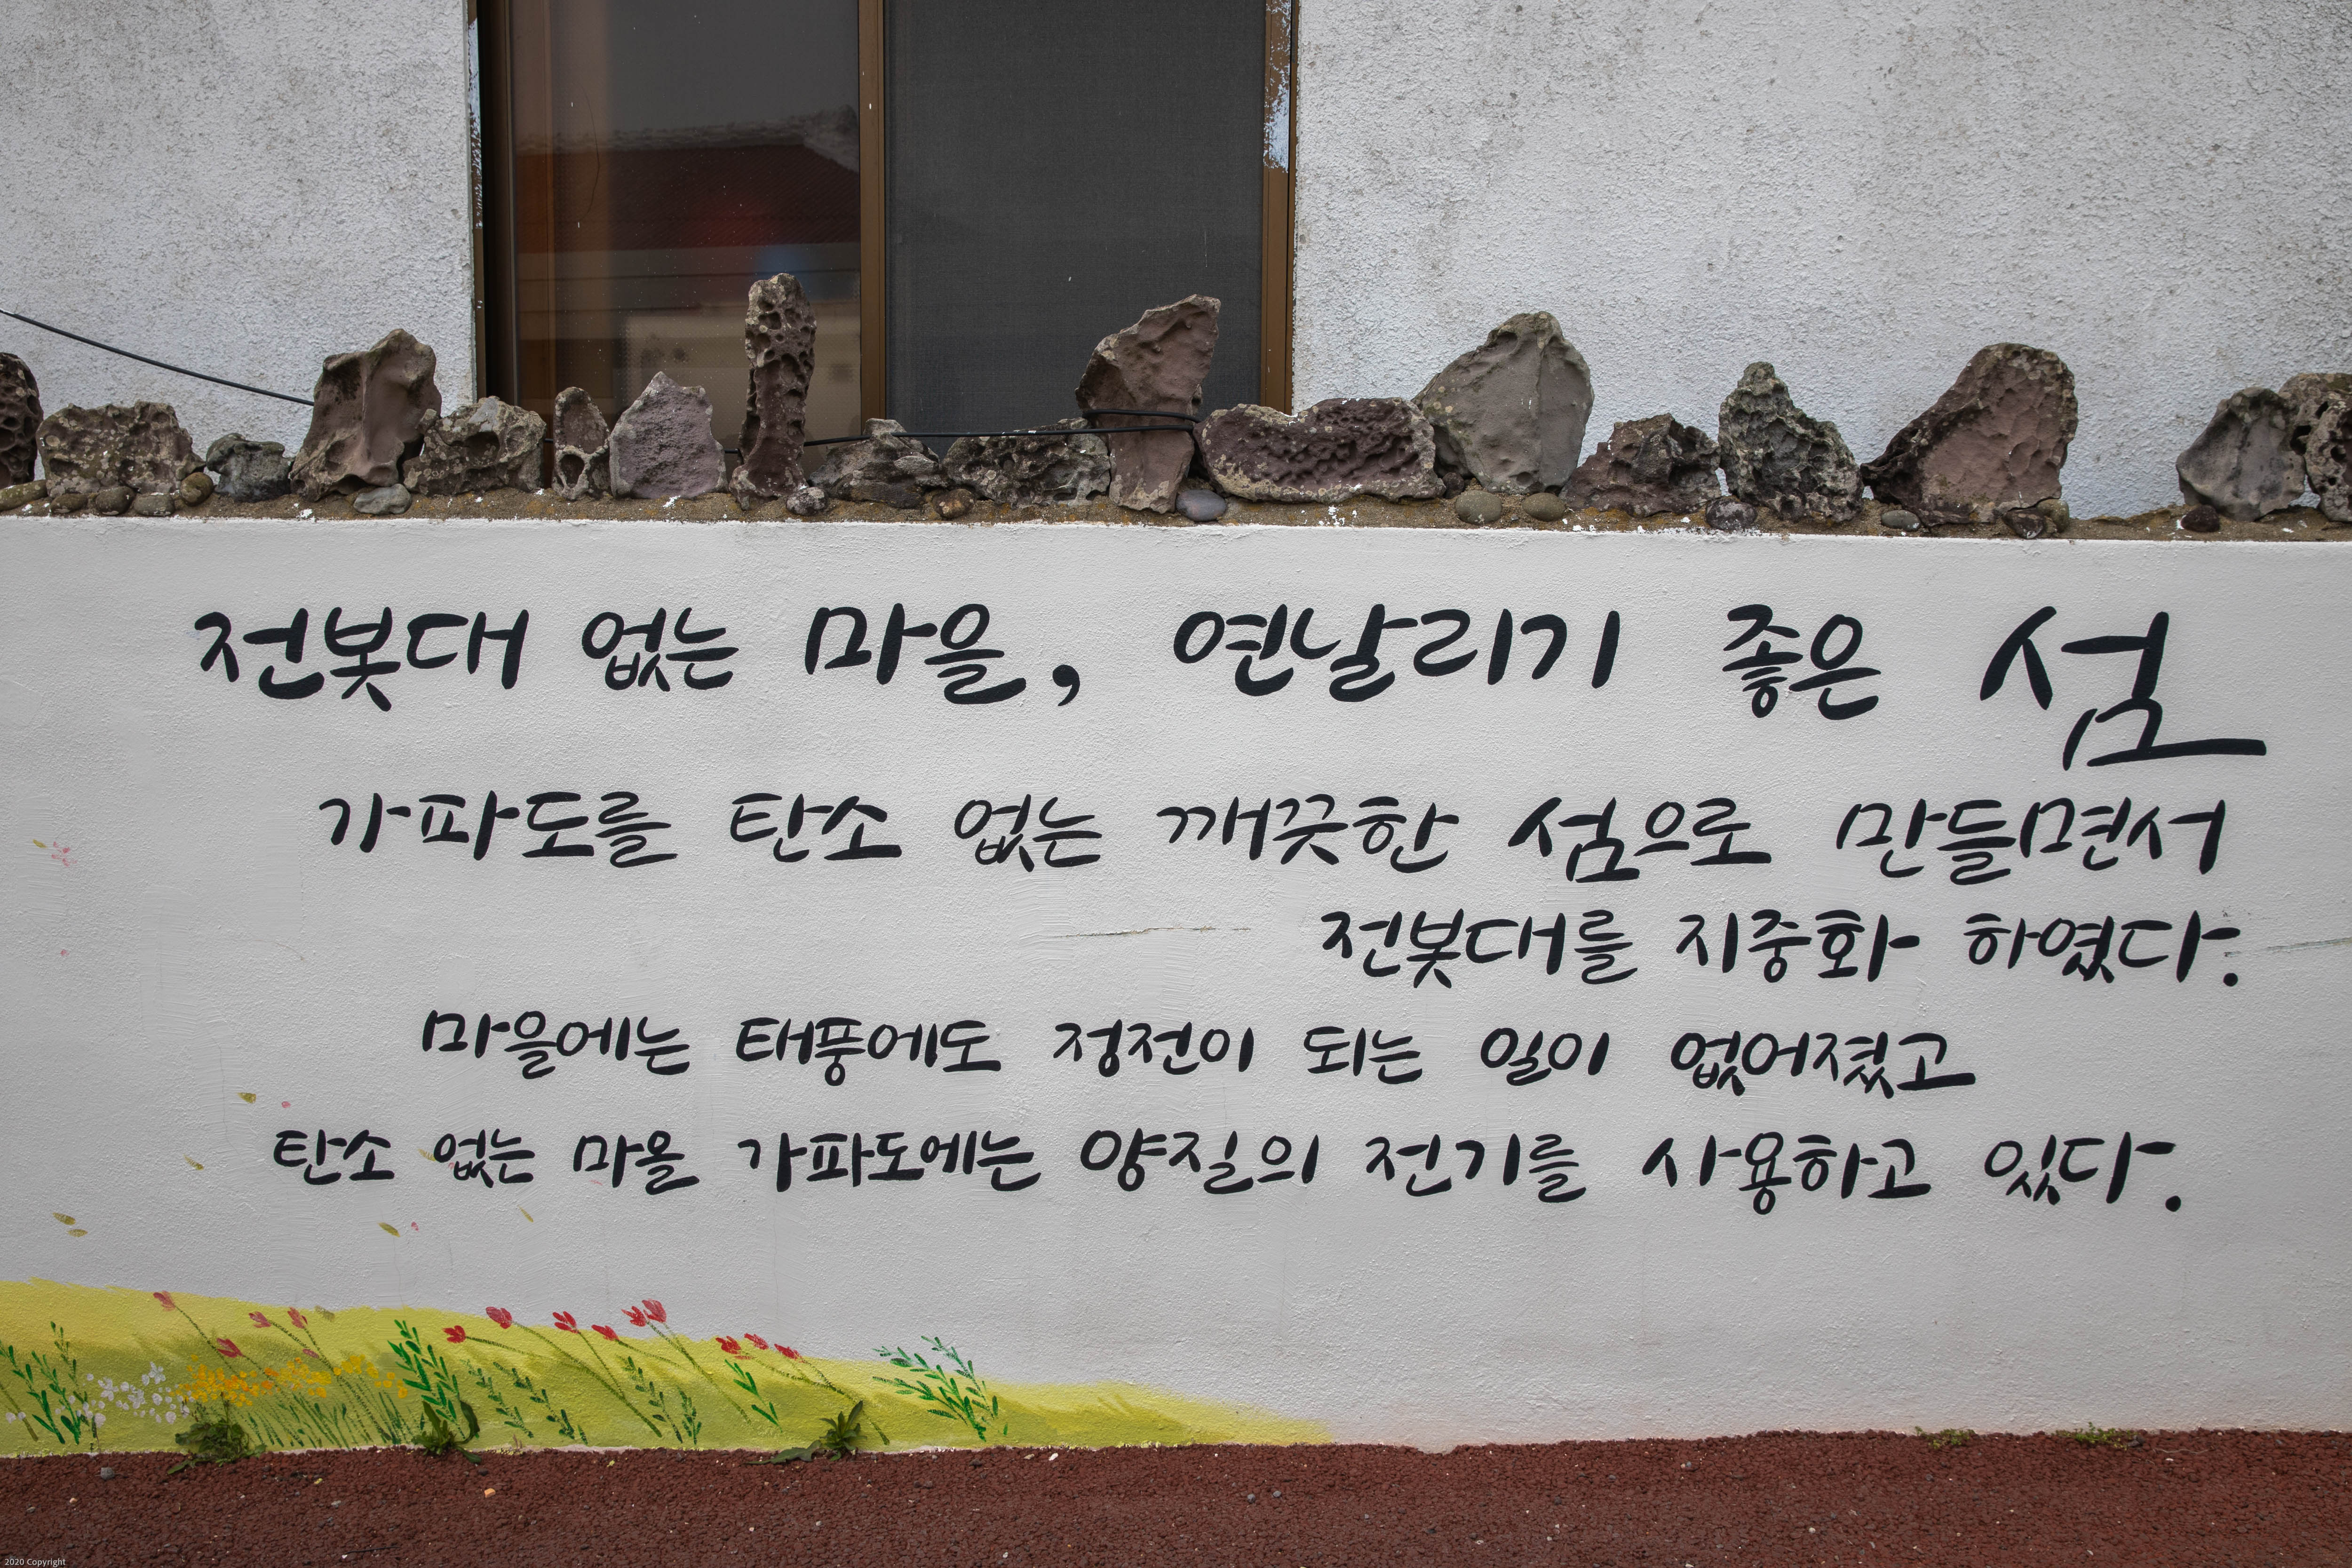 전봇대 없는 마을, 연날리기 좋은 섬
가파도를 탄소 없는 깨끗한 섬으로 만들면서
전봇대를 지중화 하였다.
마을에는 태풍에도 정전이 되는 일이 없어졌고
탄소 없는 마을 가파도에는 양질의 전기를 사용하고 있다.
2020 Copyright